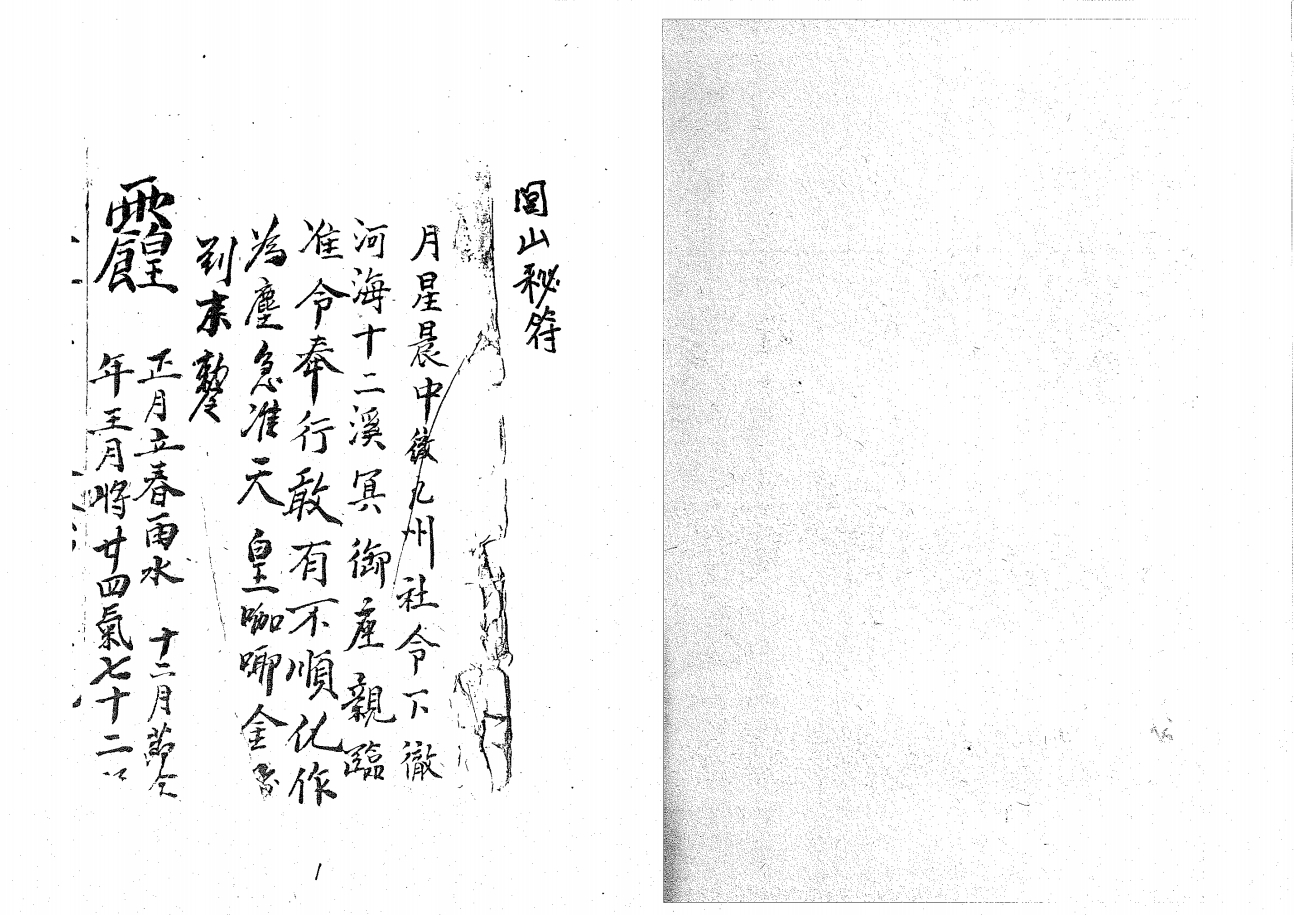 閭山秘符
月星晨中徹九州社令下徹
河海十二溪冥御座親臨
准令奉行敢有不順化作
為塵急准天皇㘄唧金
到奉勅
正月立春雨水 十二月節令
年王月將廿四氣七十二
1